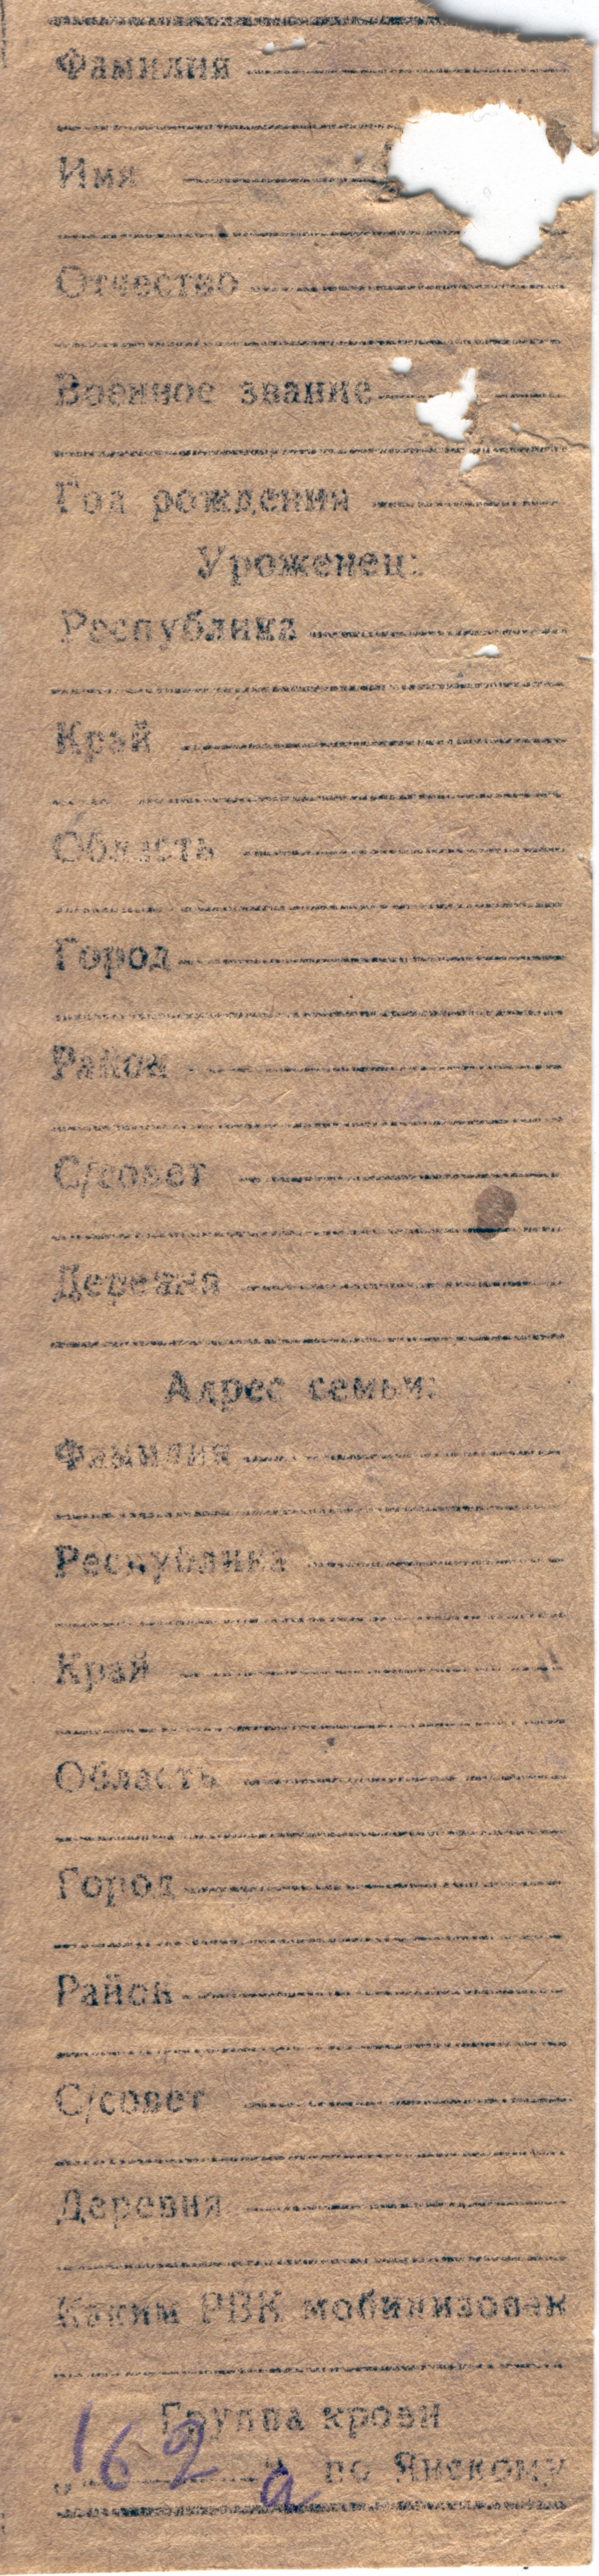 Фамилия
Имя
Отчество
Военное звание
Год рождения
Уроженец:
Республика
Край
Область
Город
Район
С/совет
Деревня
Адрес семьи:
Фамилия
Республика
Край
Область
Город
Район
С/совет
Деревня
Каким РВК мобилизован
Группа крови
162 а
„ " по Янскому